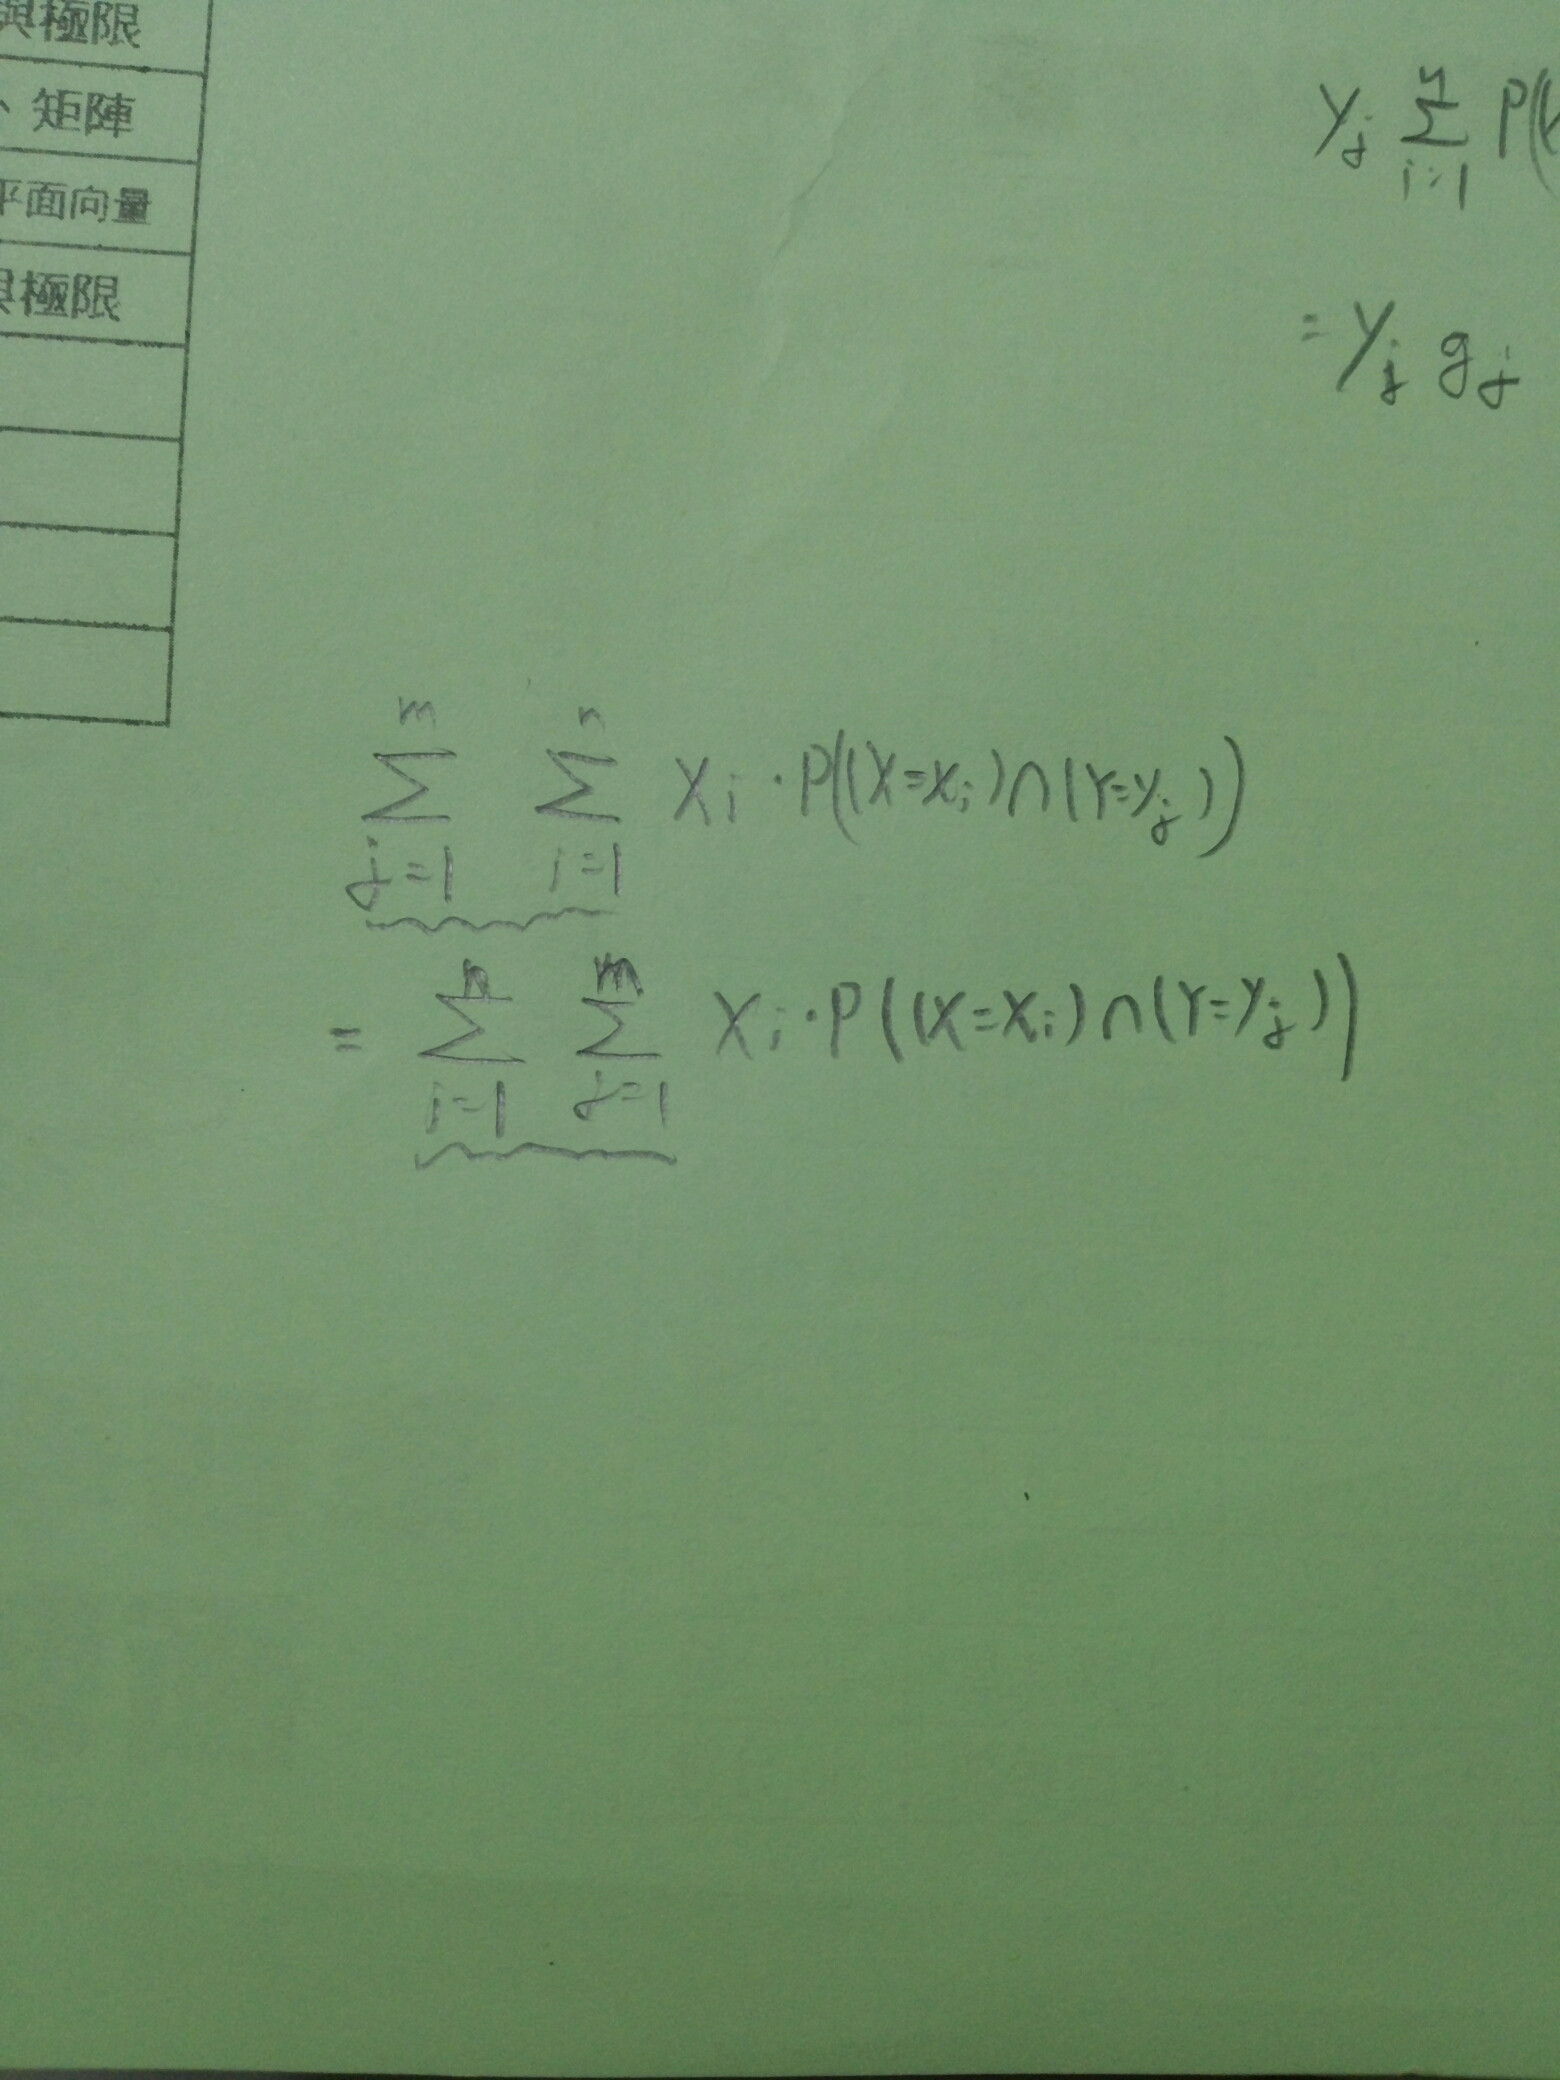 與極限
、矩陣
平面向量
與極限
y_j \sum_{i=1}^{n} P(
= y_j g_j
\sum_{j=1}^{m} \sum_{i=1}^{n} x_i · P((X=x_i)∩(Y=y_j))
= \sum_{i=1}^{n} \sum_{j=1}^{m} x_i · P((X=x_i)∩(Y=y_j))